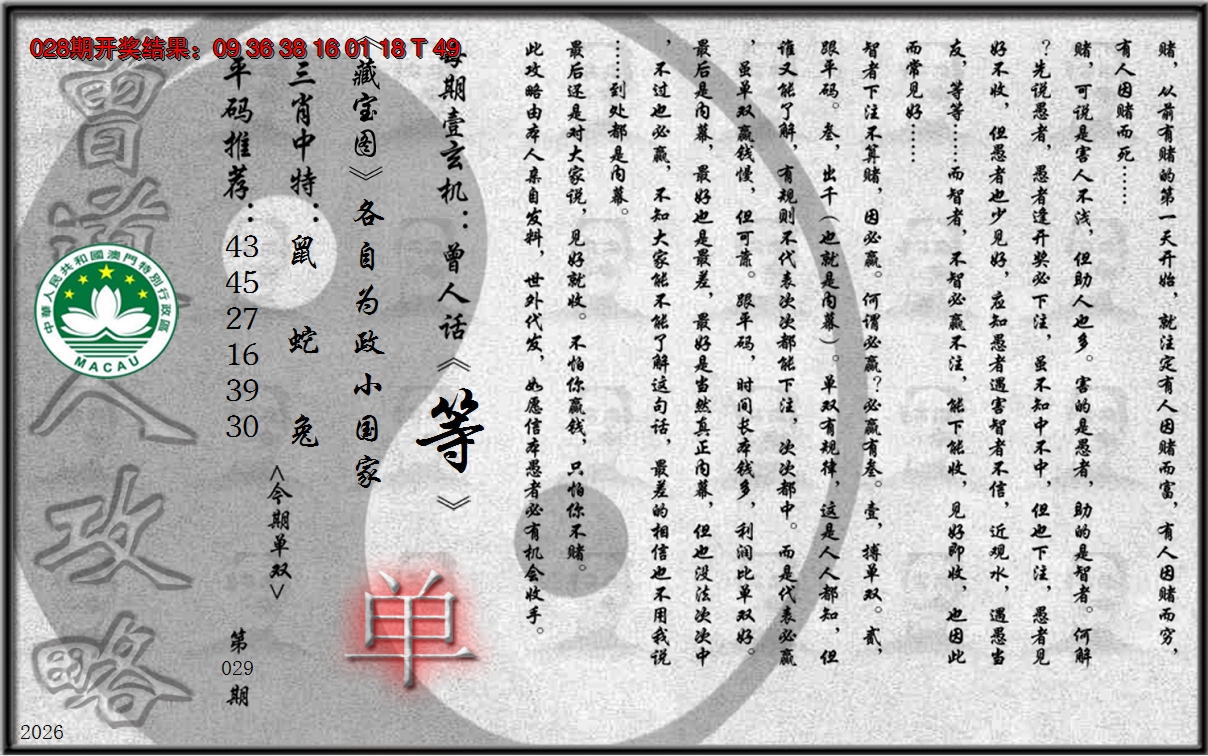 028期开奖结果：09 36 38 16 01 18 T 49
赌，从前有赌的第一天开始，就注定有人因赌而富，有人因赌而穷，
有人因赌而死……
赌，可说是害人不浅，但助人也多。害的是愚者，助的是智者。何解
？先说愚者，愚者逢开奖必下注，虽不知中不中，但也下注，愚者见
好不收，但愚者也少见好，应知愚者遇害智者不信，近观水，遇愚当
友，等等……而智者，不智必赢不注，能下能收，见好即收，也因此
而常见好……
智者下注不算赌，因必赢。何谓必赢？必赢有叁。壹，搏单双。贰，
跟平码。叁，出千（也就是内幕）。单双有规律，这是人人都知，但
谁又能了解，有规则不代表次次都能下注，次次都中。而是代表必赢
，虽单双赢钱慢，但可靠。跟平码，时间长本钱多，利润比单双好。
最后是内幕，最好也是最差，最好是当然真正内幕，但也没法次次中
，不过也必赢，不知大家能不能了解这句话，最差的相信也不用我说
……到处都是内幕。
最后还是对大家说，见好就收。不怕你赢钱，只怕你不赌。
此攻略由本人亲自发料，世外代发，如愿信本愚者必有机会收手。
每期壹玄机：曾人话《等》
《藏宝图》各自为政小国家
单
三肖中特：鼠 蛇 兔
<今期单双>
平码推荐：43 45 27 16 39 30
第029期
曾道人攻略
中華人民共和國澳門特別行政區
MACAU
2026